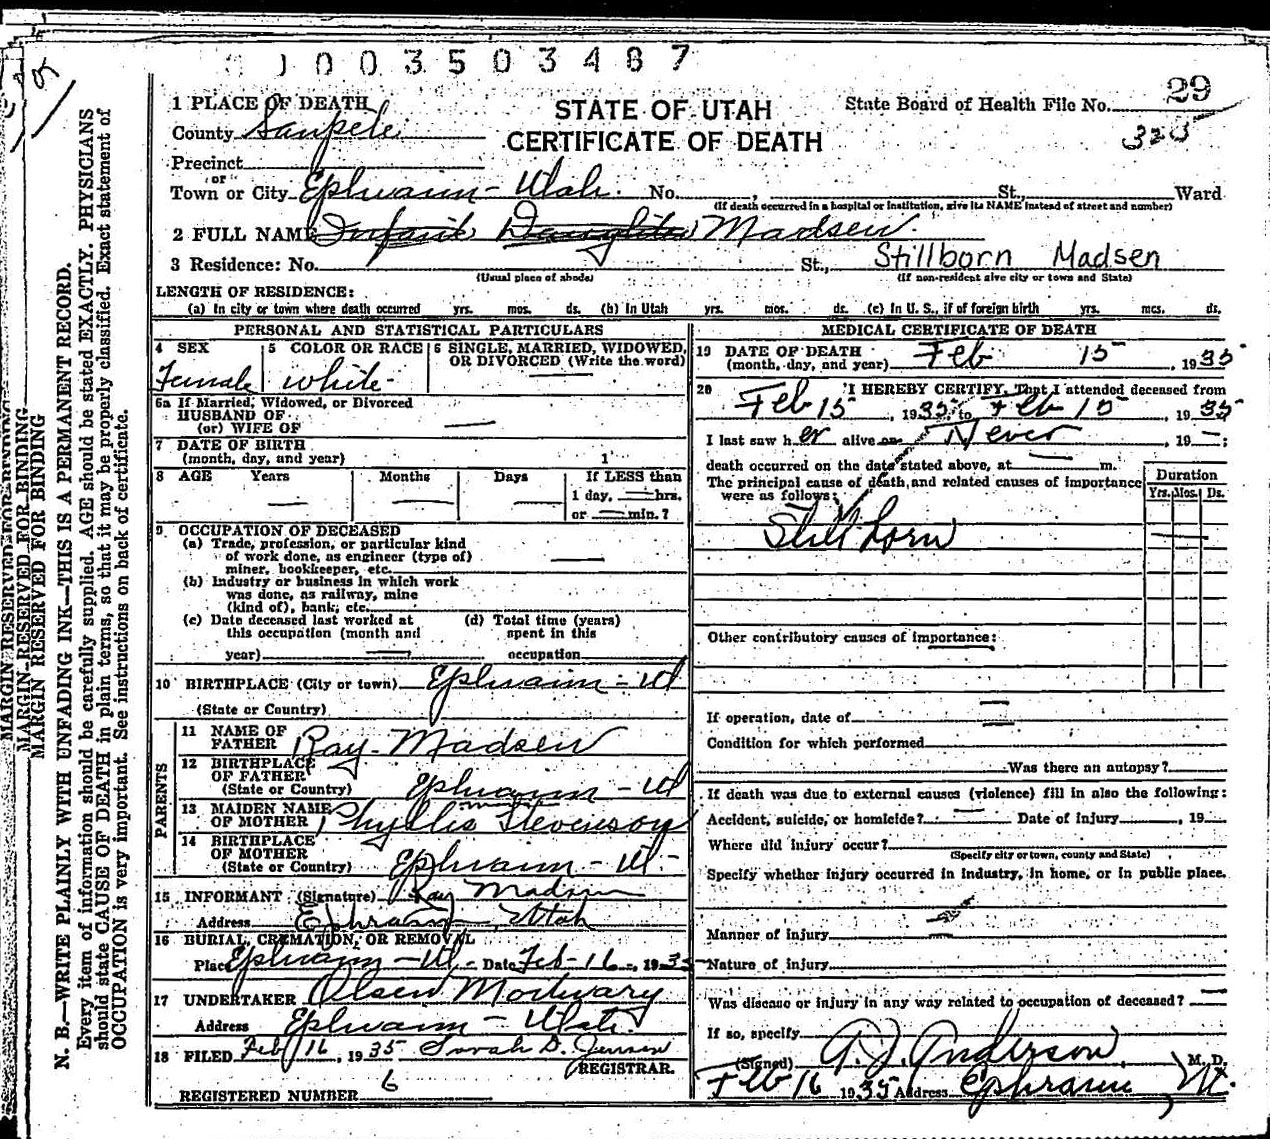 0 0 3 5 0 3 4 8 7
29
1 PLACE OF DEATH
STATE OF UTAH
State Board of Health File No.
County Sanpete
CERTIFICATE OF DEATH
325
Precinct
or
Town or City Ephraim - Utah. No. , St, Ward
(If death occurred in a hospital or institution, give its NAME instead of street and number)
2 FULL NAME Infant Daughter Madsen.
3 Residence: No. St., Stillborn Madsen
(Usual place of abode) (If non-resident give city or town and State)
LENGTH OF RESIDENCE:
(a) In city or town where death occurred yrs. mos. ds. (b) In Utah yrs. mos. ds. (c) In U. S., if of foreign birth yrs. mos. ds.
PERSONAL AND STATISTICAL PARTICULARS
4 SEX 5 COLOR OR RACE 6 SINGLE, MARRIED, WIDOWED,
OR DIVORCED (Write the word)
Female white -
6a If Married, Widowed, or Divorced
HUSBAND OF
(or) WIFE OF —
7 DATE OF BIRTH
(month, day, and year) 1
8 AGE Years Months Days If LESS than
1 day, — hrs.
or — min.?
9 OCCUPATION OF DECEASED
(a) Trade, profession, or particular kind
of work done, as engineer (type of)
miner, bookkeeper, etc.
(b) Industry or business in which work
was done, as railway, mine
(kind of), bank, etc.
(c) Date deceased last worked at (d) Total time (years)
this occupation (month and spent in this
year) — occupation
10 BIRTHPLACE (City or town) Ephraim - Ut
(State or Country)
PARENTS
11 NAME OF
FATHER Ray Madsen
12 BIRTHPLACE
OF FATHER
(State or Country) Ephraim - Ut
13 MAIDEN NAME
OF MOTHER Phyllis Stevenson
14 BIRTHPLACE
OF MOTHER
(State or Country) Ephraim - Ut -
15 INFORMANT (Signature) Ray Madsen
Address Ephraim, Utah
16 BURIAL, CREMATION, OR REMOVAL
Place Ephraim - Ut - Date Feb - 16 -, 1935
17 UNDERTAKER Olsen Mortuary
Address Ephraim - Utah.
18 FILED Feb 16, 1935 Sarah D. Jensen
REGISTRAR.
REGISTERED NUMBER 6
MEDICAL CERTIFICATE OF DEATH
19 DATE OF DEATH
(month, day, and year) Feb 15, 1935
20 I HEREBY CERTIFY, That I attended deceased from
Feb 15, 1935 to Feb 15, 1935
I last saw her alive on Never, 19 —;
death occurred on the date stated above, at m.
The principal cause of death, and related causes of importance
were as follows:
Duration
Yrs. Mos. Ds.
Still born
Other contributory causes of importance:
If operation, date of —
Condition for which performed
Was there an autopsy?
If death was due to external causes (violence) fill in also the following:
Accident, suicide, or homicide? — Date of injury , 19
Where did injury occur?
(Specify city or town, county and State)
Specify whether injury occurred in industry, in home, or in public place.
Manner of injury —
Nature of injury
Was disease or injury in any way related to occupation of deceased? —
If so, specify
(Signed) A. J. Anderson, M. D.
Feb 16 1935 Address Ephraim, Ut.
MARGIN RESERVED FOR BINDING
MARGIN RESERVED FOR BINDING
MARGIN RESERVED FOR BINDING
N. B.—WRITE PLAINLY WITH UNFADING INK—THIS IS A PERMANENT RECORD.
Every item of information should be carefully supplied. AGE should be stated EXACTLY. PHYSICIANS
should state CAUSE OF DEATH in plain terms, so that it may be properly classified. Exact statement of
OCCUPATION is very important. See instructions on back of certificate.